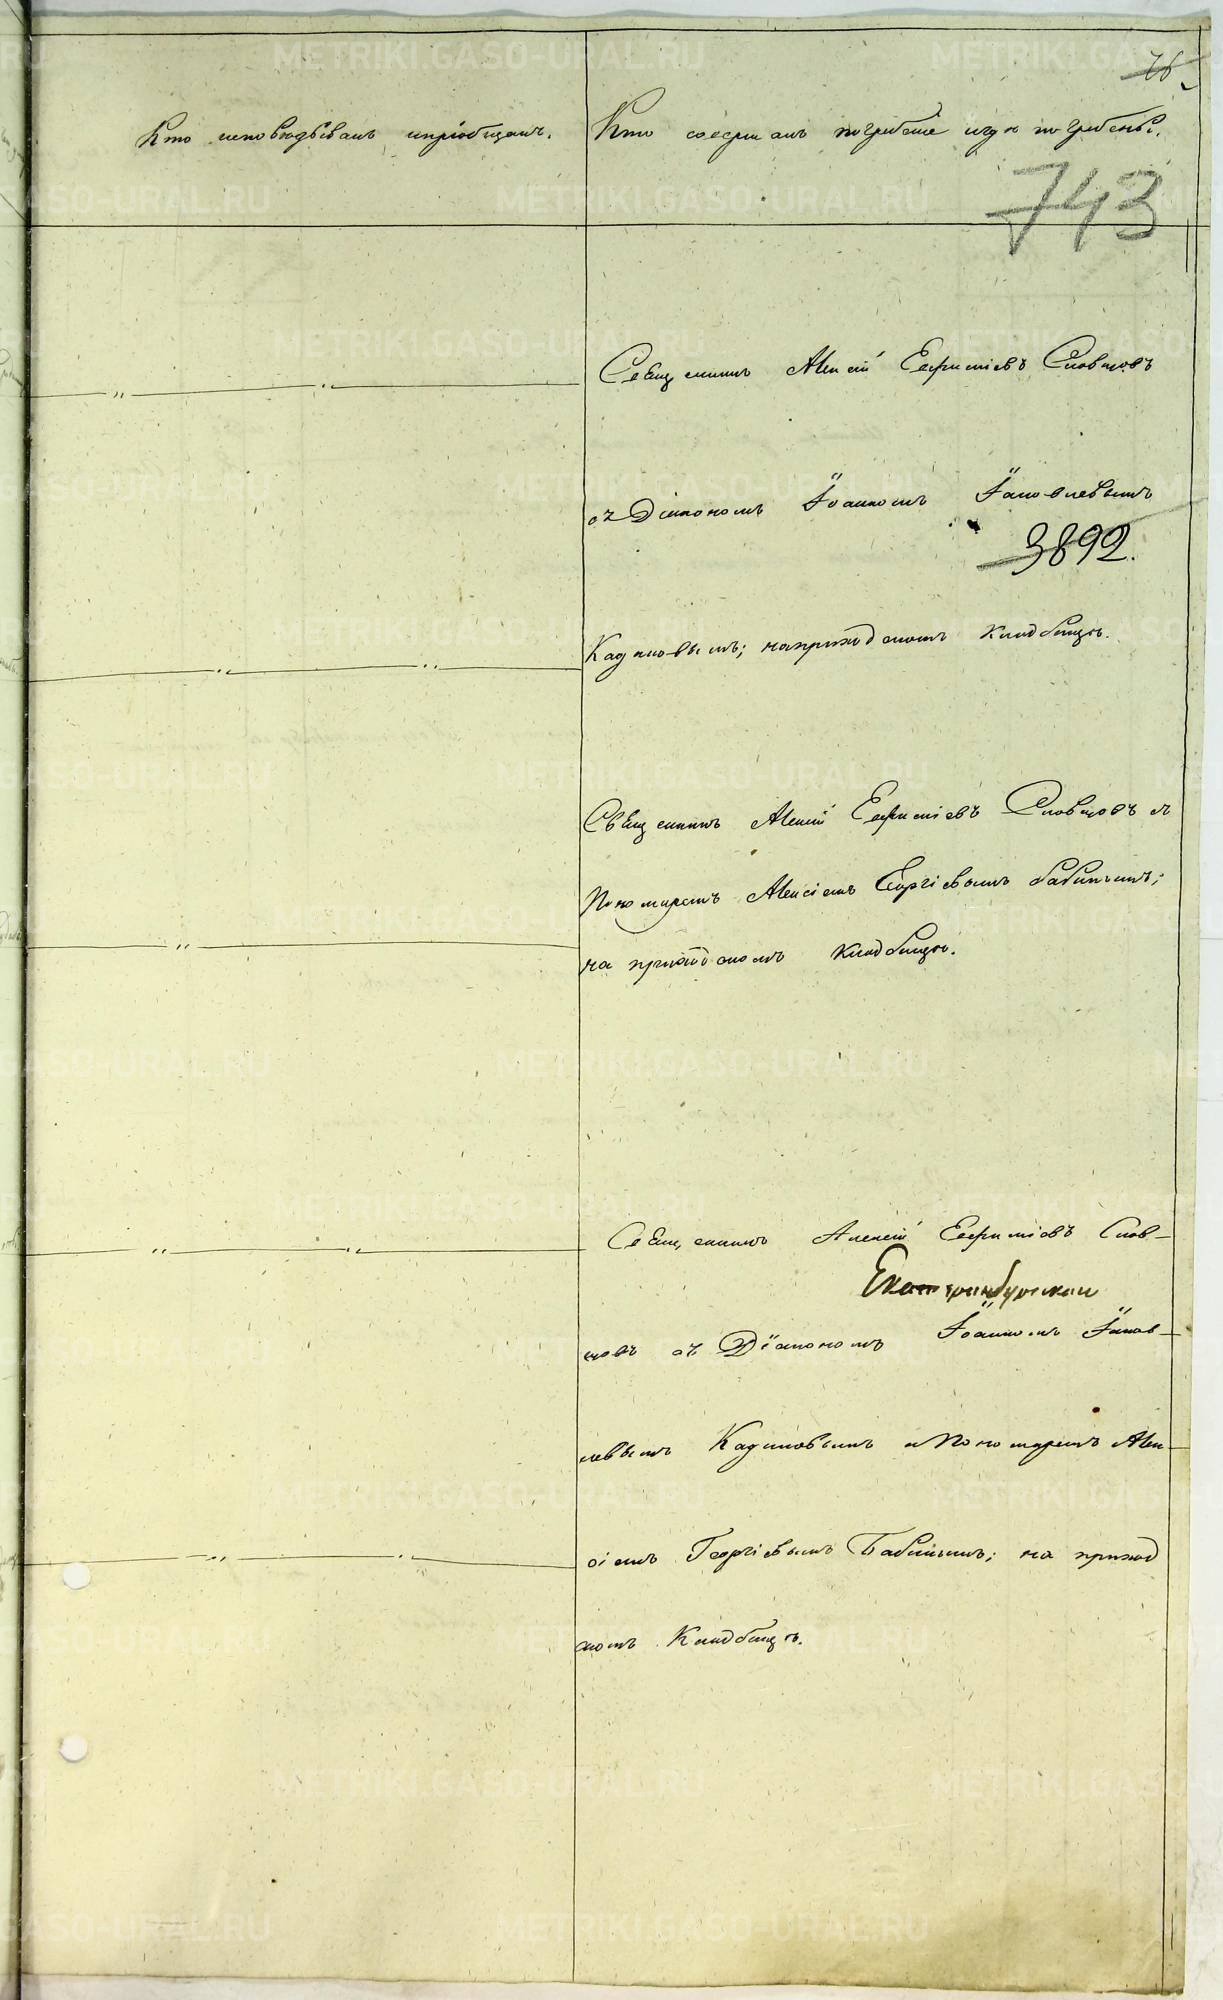 76
Кто исповѣдывалъ и пріобщалъ.
Кто совершалъ погребеніе и гдѣ погребены.
743
Священникъ Алексій Евфиміевъ Словцовъ
съ Діакономъ Іоанномъ Іаковлевымъ
3892.
Кадиковымъ; на приходскомъ кладбищѣ.
Священникъ Алексій Евфиміевъ Словцовъ съ
Пономаремъ Алексіемъ Георгіевымъ Бабинымъ;
на приходскомъ кладбищѣ.
Священникъ Алексій Евфиміевъ Слов-
Екатеринбургскаи
цовъ съ Діакономъ Іоанномъ Іаков-
левымъ и Пономаремъ Алек-
сіемъ Георгіевымъ Бабинымъ; на приход
скомъ Кладбищѣ.
METRIKI.GASO-URAL.RU